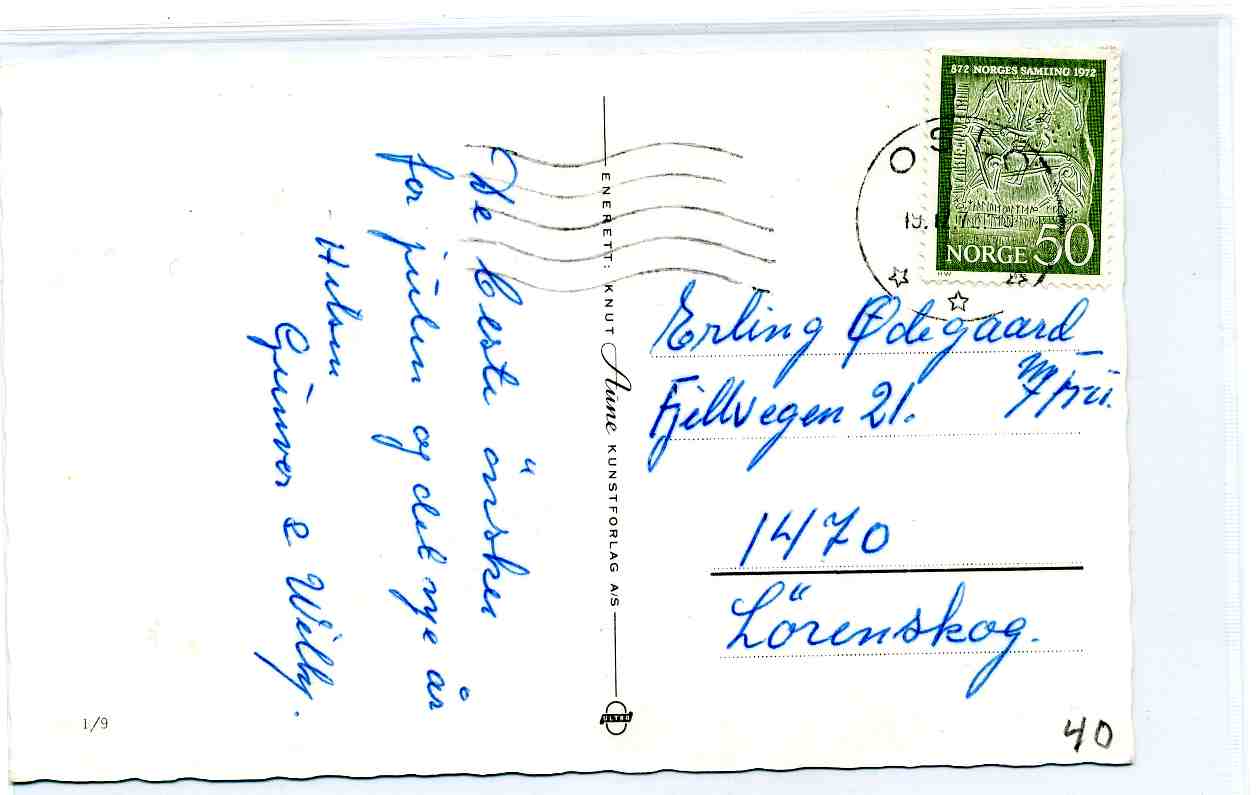 De beste önsker
for julen og det nye år
Hilsen
Gunvor & Willy.
ENERETT: KNUT Aune KUNSTFORLAG A/S
ULTRA
1/9
872 NORGES SAMLING 1972
NORGE 50
OSLO
19.
Erling Ødegaard
m/fru.
Fjellvegen 21.
1470
Lörenskog.
40